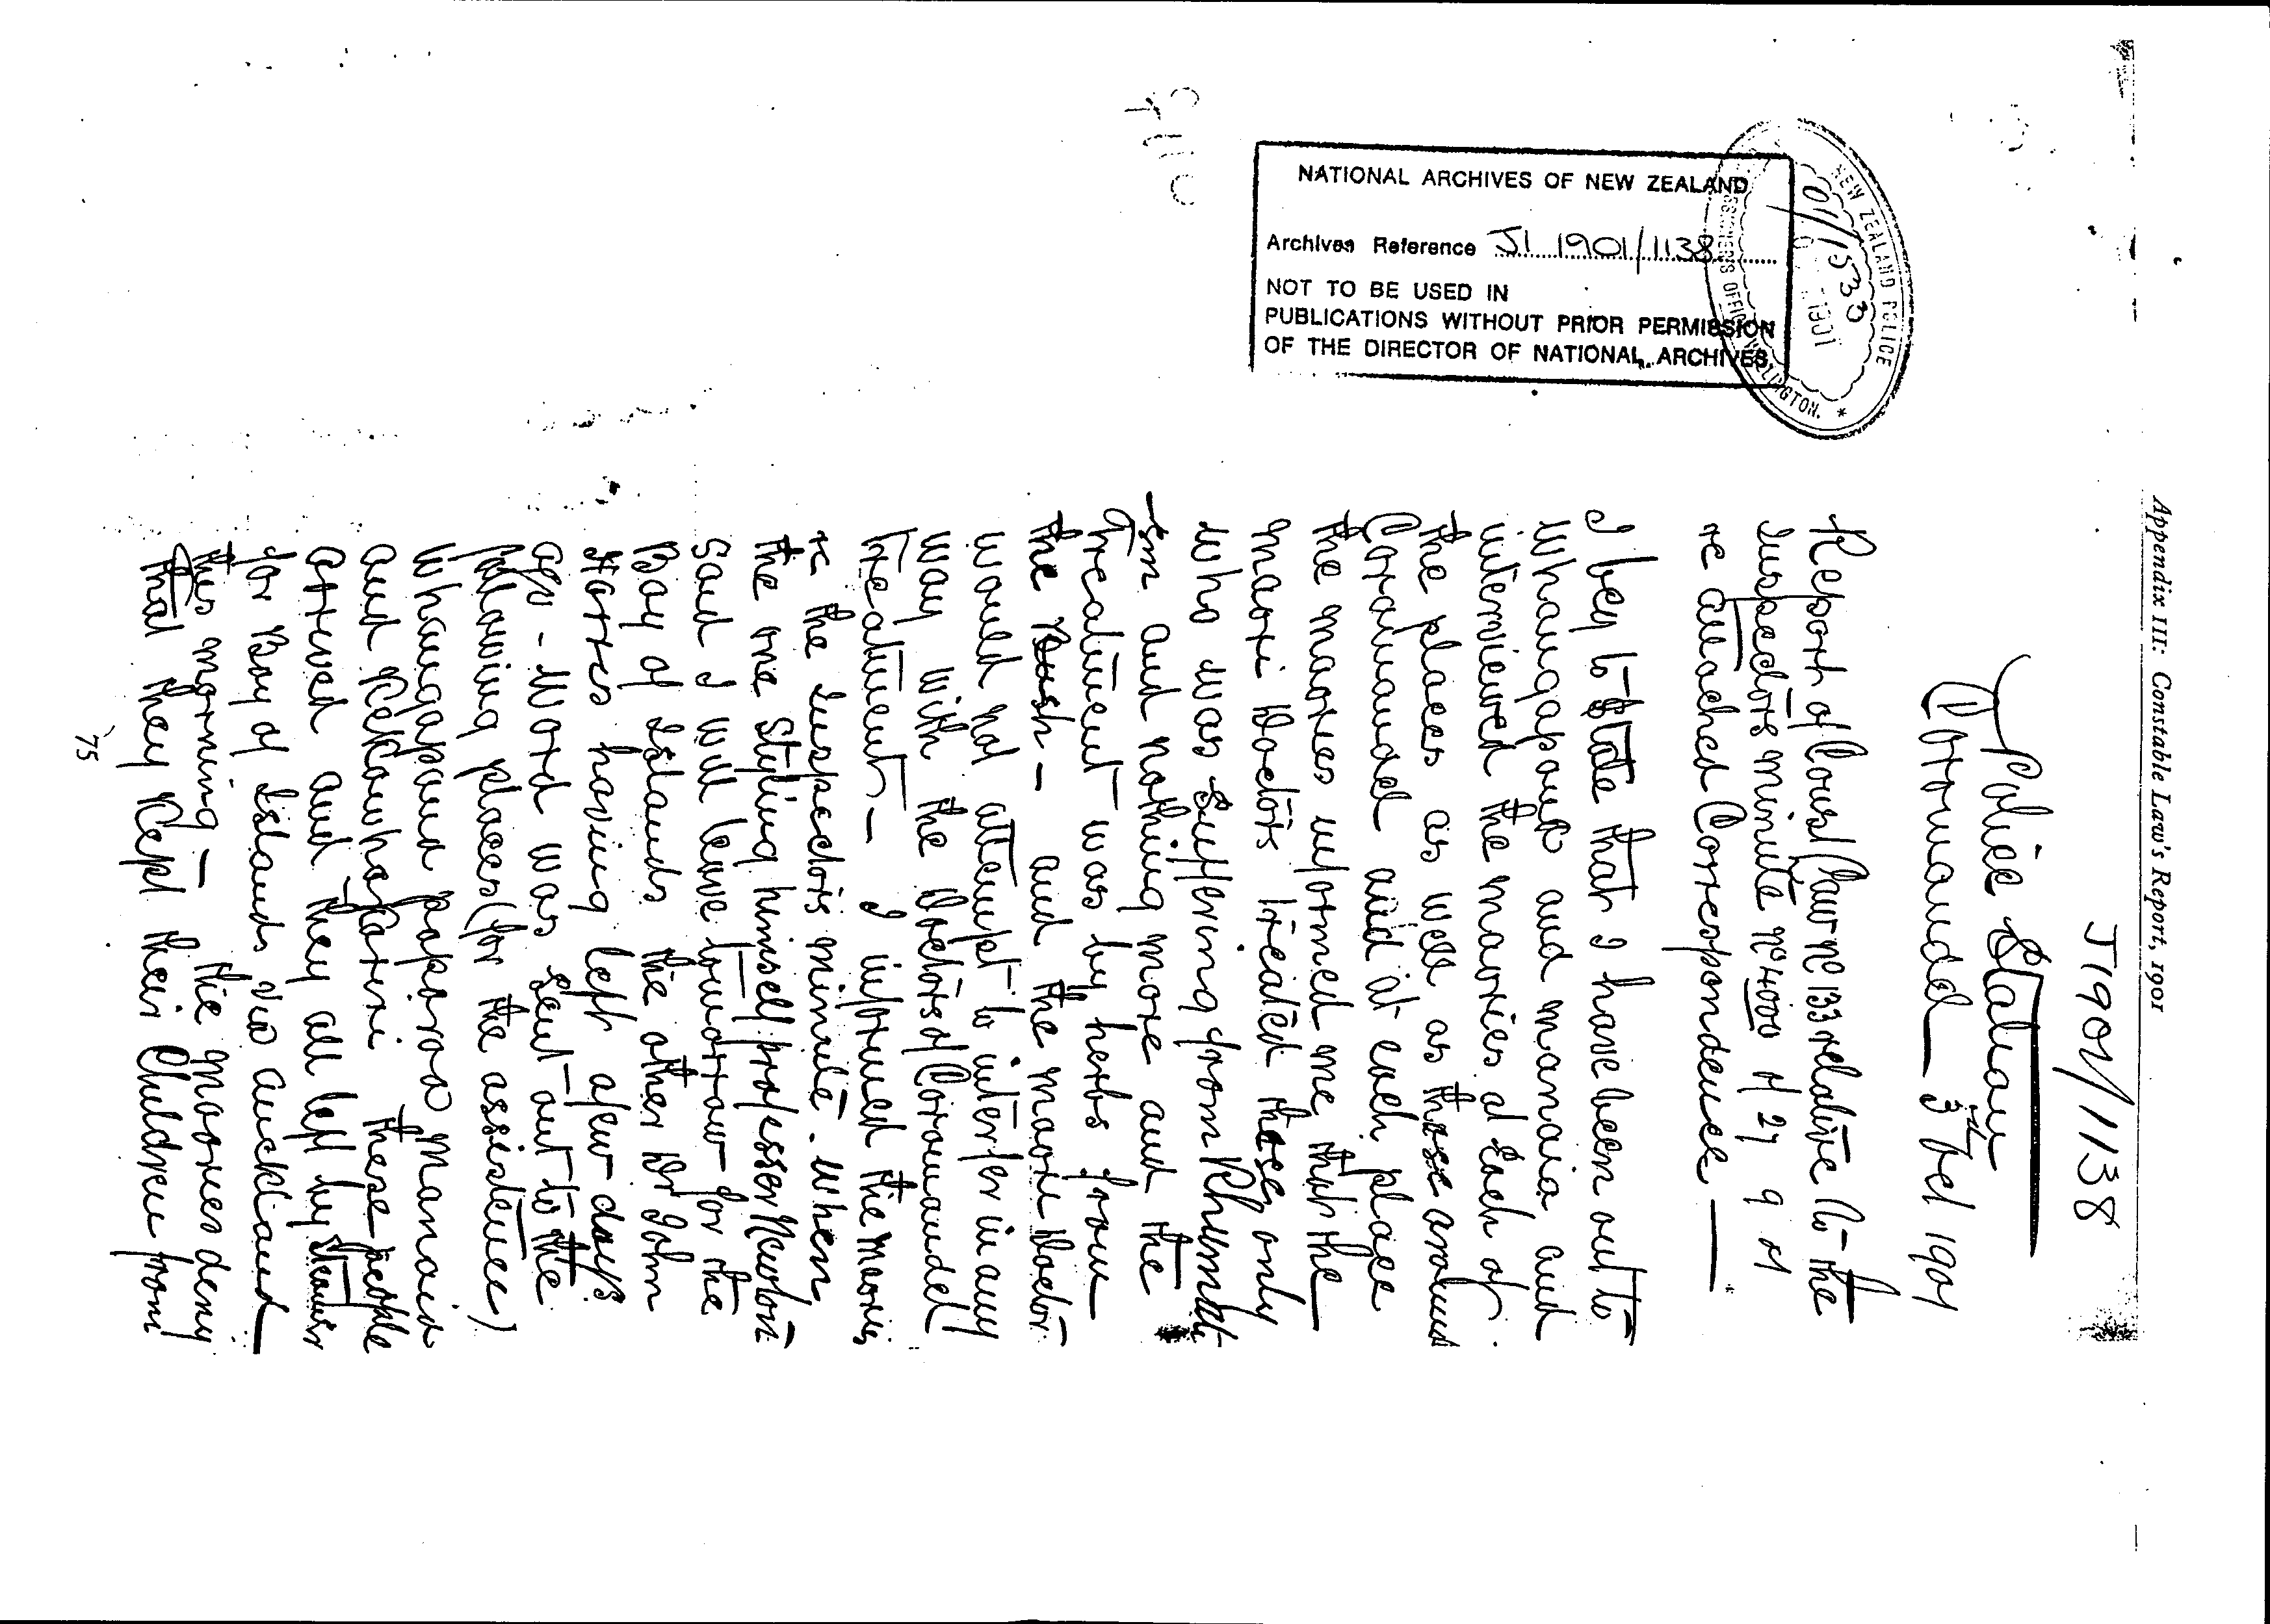 Appendix III: Constable Law's Report, 1901
J1 1901/1138
Police Station
Coromandel 3rd Oct 1901
Report of Const Law No 133 relative to the
Inspectors minute No 4000 of 27 9 01
re attached Correspondence —
I beg to State that I have been out to
Whangapoua and manaia and
interviewed the maories at Each of
the places as well as those around
Coromandel and at each place
the maories informed me that the
maori Doctors treated those only
who was Suffering from Rhumat
-ism and nothing more and the
treatment was by herbs from
the Bush - and the maori Doctor
would not attempt to interfer in any
way with the Doctors of Coromandel
treatment - I informed the maories
re the Inspectors minute. When
the one Styling himself professer Newton
Said I will leave tomorrow for the
Bay of Islands the other Dr John
Harris having left a few days
ago - Word was Sent out to the
following places (for the assistence)
Whangapoua paparoa Manaia
and Kekowhakarini these people
arrived and they all left by Steamer
for Bay of Islands via Auckland
this morning - the maories deny
that they Kept their Children from
75
NATIONAL ARCHIVES OF NEW ZEALAND
Archives Reference J1 1901/1138
NOT TO BE USED IN
PUBLICATIONS WITHOUT PRIOR PERMISSION
OF THE DIRECTOR OF NATIONAL ARCHIVES
NEW ZEALAND POLICE
01/1533
1901
OFFICE WELLINGTON.